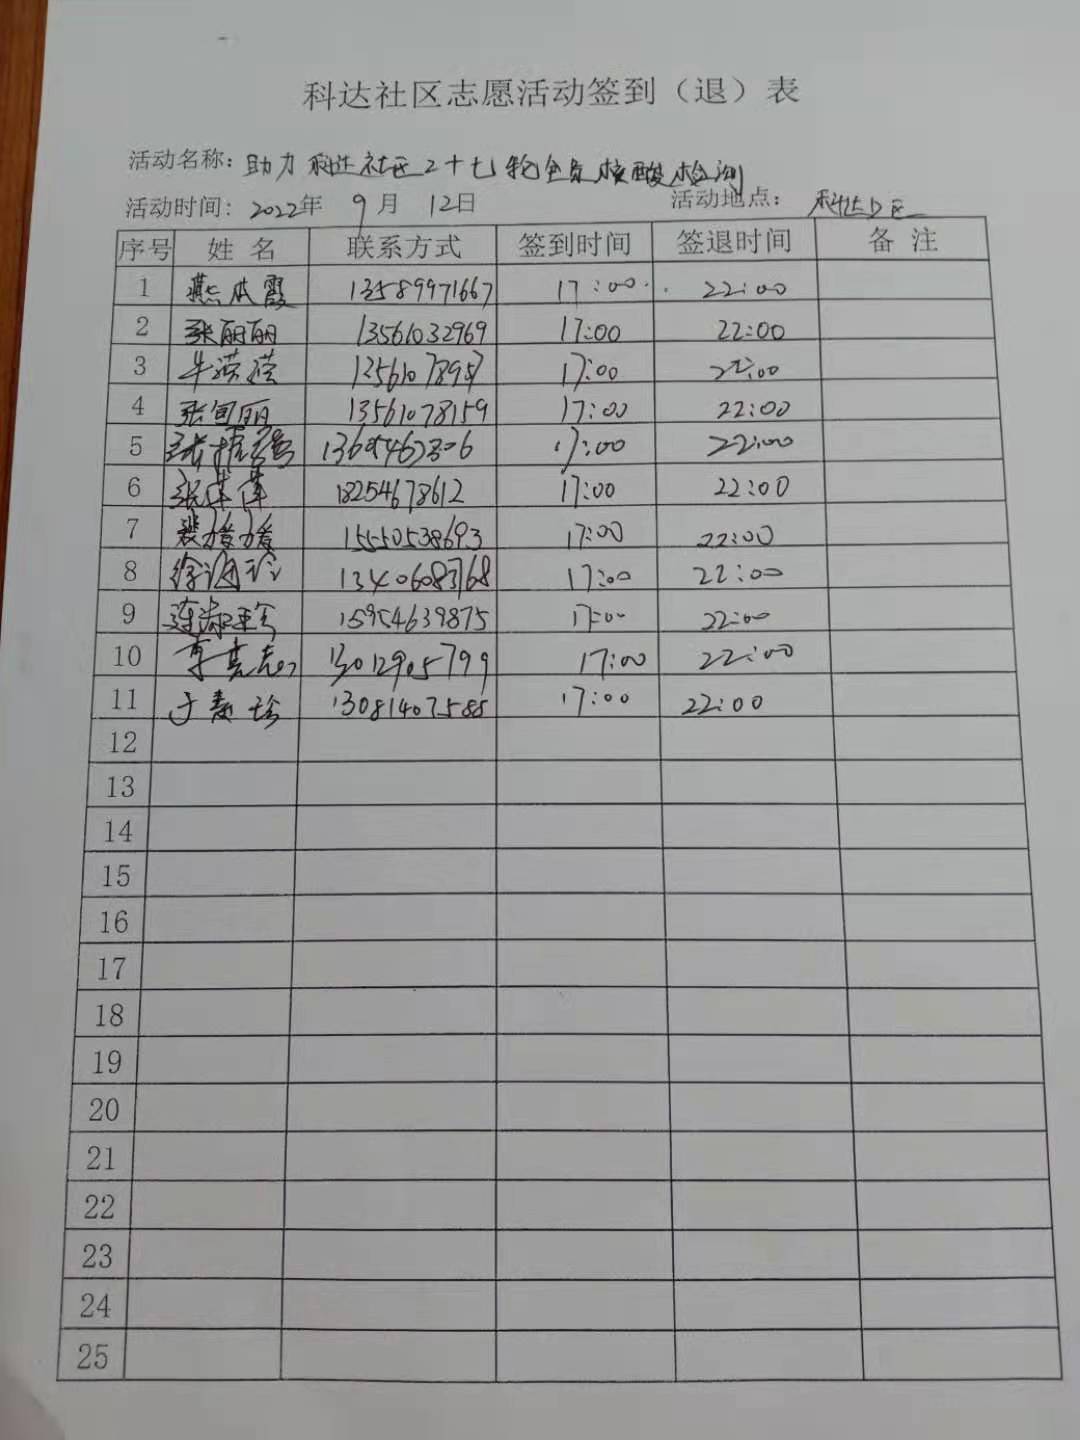 科达社区志愿活动签到（退）表
活动名称：助力科达社区二十七轮全员核酸检测
活动时间：2022年 9月 12日 活动地点：科达D区
序号 姓名 联系方式 签到时间 签退时间 备注
1 燕 霞 13589971667 17:00 22:00
2 张丽丽 13561032969 17:00 22:00
3 牛滢滢 17:00 22:00
4 张 丽 13561078159 17:00 22:00
5 张 17:00 22:00
6 张萍萍 18254678612 17:00 22:00
7 裴媛媛 15550538693 17:00 22:00
8 徐 玲 13406083768 17:00 22:00
9 连淑珍 15954639875 17:00 22:00
10 李 13012905799 17:00 22:00
11 于 珍 13081407588 17:00 22:00
12
13
14
15
16
17
18
19
20
21
22
23
24
25